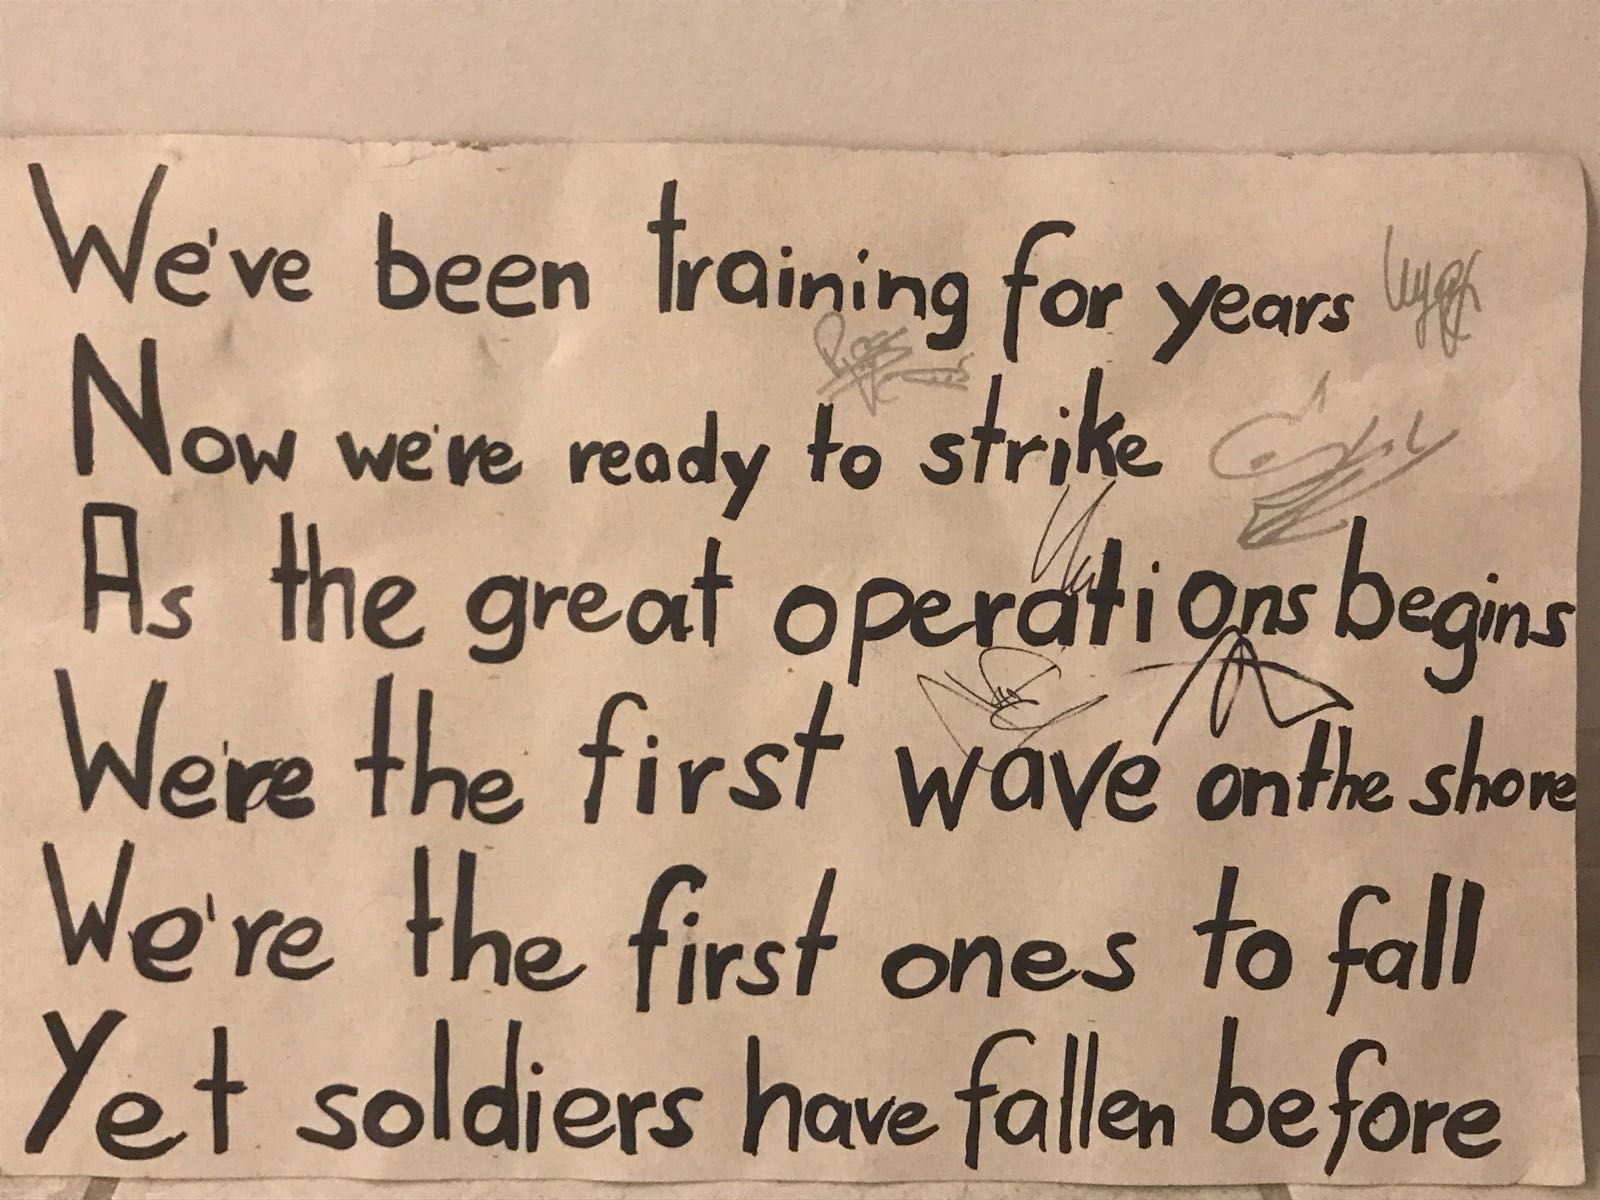 We've been training for years
Now we're ready to strike
As the great operations begins
We're the first wave on the shore
We're the first ones to fall
Yet soldiers have fallen before